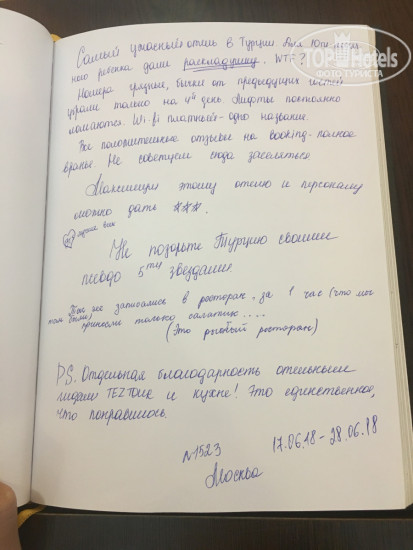 Самый ужасный отель в Турции. Для 10ти лет-
него ребенка дали раскладушку. WTF?
Номера грязные, бычки от предыдущих гостей
убрали только на 4й день. Лифты постоянно
ломаются. Wi-fi платный - одно название.
Все положительные отзывы на booking - полное
вранье. Не советуем сюда заселяться
Максимум этому отелю и персоналу
можно дать ***.
Не позорьте Турцию своими
псевдо 5ти звездами
Так же записались в ресторан, за 1 час (что мы
там были) принесли только салатик ....
(Это рыбный ресторан)
P.S. Отдельная благодарность отельным
гидам TEZ TOUR и кухне! Это единственное,
что понравилось.
17.06.18 - 28.06.18
№1523
Москва
TopHotels
ФОТО ТУРИСТА